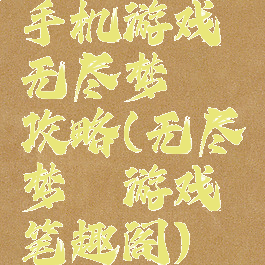 手机游戏
无尽梦
攻略(无尽
梦 游戏
笔趣阁)